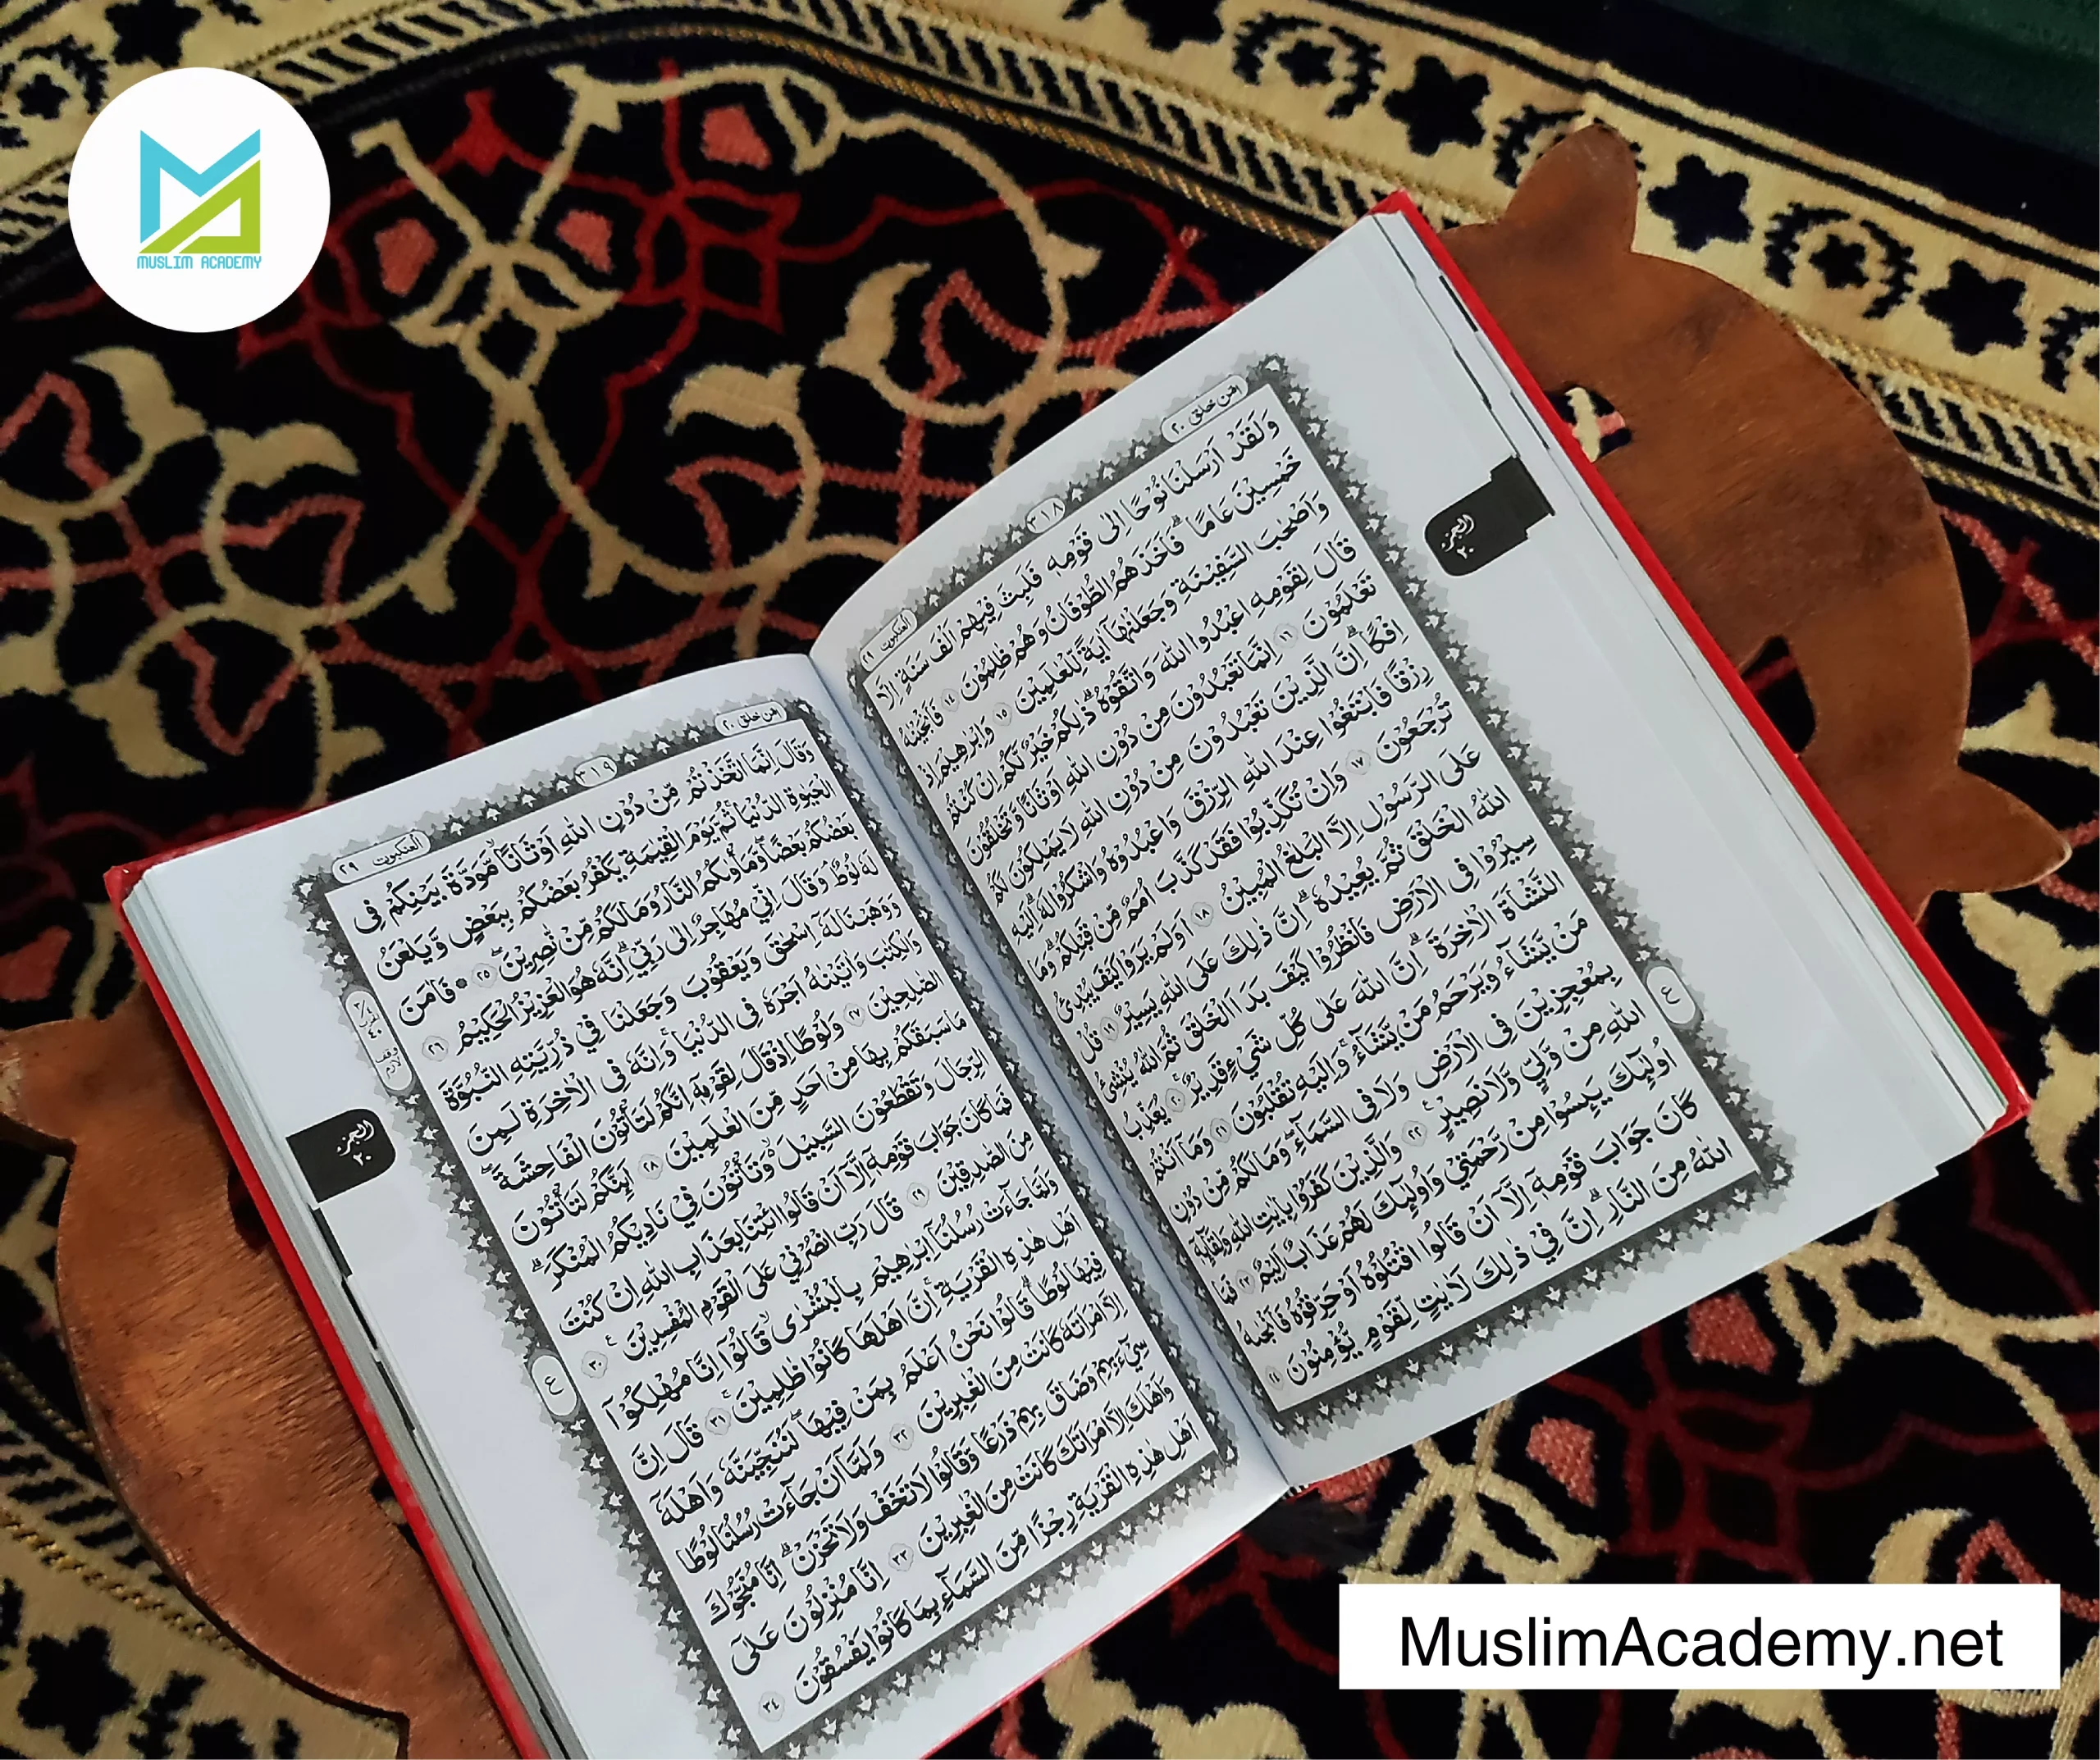 MUSLIM ACADEMY
امن خلق ٢٠
٣١٨
العنكبوت ٢٩
وَلَقَدْ اَرْسَلْنَا نُوْحًا اِلٰى قَوْمِهٖ فَلَبِثَ فِيْهِمْ اَلْفَ سَنَةٍ اِلَّا
خَمْسِيْنَ عَامًا ۗ فَاَخَذَهُمُ الطُّوْفَانُ وَهُمْ ظٰلِمُوْنَ ١٤ فَاَنْجَيْنٰهُ
وَاَصْحٰبَ السَّفِيْنَةِ وَجَعَلْنٰهَآ اٰيَةً لِّلْعٰلَمِيْنَ ١٥ وَاِبْرٰهِيْمَ اِذْ
قَالَ لِقَوْمِهِ اعْبُدُوا اللّٰهَ وَاتَّقُوْهُ ۗ ذٰلِكُمْ خَيْرٌ لَّكُمْ اِنْ كُنْتُمْ
تَعْلَمُوْنَ ١٦ اِنَّمَا تَعْبُدُوْنَ مِنْ دُوْنِ اللّٰهِ اَوْثَانًا وَّتَخْلُقُوْنَ
اِفْكًا ۗ اِنَّ الَّذِيْنَ تَعْبُدُوْنَ مِنْ دُوْنِ اللّٰهِ لَا يَمْلِكُوْنَ لَكُمْ
رِزْقًا فَابْتَغُوْا عِنْدَ اللّٰهِ الرِّزْقَ وَاعْبُدُوْهُ وَاشْكُرُوْا لَهٗ ۗ اِلَيْهِ
تُرْجَعُوْنَ ١٧ وَاِنْ تُكَذِّبُوْا فَقَدْ كَذَّبَ اُمَمٌ مِّنْ قَبْلِكُمْ ۗ وَمَا
عَلَى الرَّسُوْلِ اِلَّا الْبَلٰغُ الْمُبِيْنُ ١٨ اَوَلَمْ يَرَوْا كَيْفَ يُبْدِئُ
اللّٰهُ الْخَلْقَ ثُمَّ يُعِيْدُهٗ ۗ اِنَّ ذٰلِكَ عَلَى اللّٰهِ يَسِيْرٌ ١٩ قُلْ
سِيْرُوْا فِى الْاَرْضِ فَانْظُرُوْا كَيْفَ بَدَاَ الْخَلْقَ ثُمَّ اللّٰهُ يُنْشِئُ
النَّشْاَةَ الْاٰخِرَةَ ۗ اِنَّ اللّٰهَ عَلٰى كُلِّ شَيْءٍ قَدِيْرٌ ۚ ٢٠ يُعَذِّبُ
مَنْ يَّشَاۤءُ وَيَرْحَمُ مَنْ يَّشَاۤءُ ۚ وَاِلَيْهِ تُقْلَبُوْنَ ٢١ وَمَآ اَنْتُمْ
بِمُعْجِزِيْنَ فِى الْاَرْضِ وَلَا فِى السَّمَاۤءِ ۖ وَمَا لَكُمْ مِّنْ دُوْنِ
اللّٰهِ مِنْ وَّلِيٍّ وَّلَا نَصِيْرٍ ۚ ٢٢ وَالَّذِيْنَ كَفَرُوْا بِاٰيٰتِ اللّٰهِ وَلِقَاۤىِٕهٖٓ
اُولٰۤىِٕكَ يَىِٕسُوْا مِنْ رَّحْمَتِيْ وَاُولٰۤىِٕكَ لَهُمْ عَذَابٌ اَلِيْمٌ ٢٣ فَمَا
كَانَ جَوَابَ قَوْمِهٖٓ اِلَّآ اَنْ قَالُوا اقْتُلُوْهُ اَوْ حَرِّقُوْهُ فَاَنْجٰىهُ
اللّٰهُ مِنَ النَّارِ ۗ اِنَّ فِيْ ذٰلِكَ لَاٰيٰتٍ لِّقَوْمٍ يُّؤْمِنُوْنَ ٢٤
الجزء
٢٠
ع
امن خلق ٢٠
٣١٩
العنكبوت ٢٩
وَقَالَ اِنَّمَا اتَّخَذْتُمْ مِّنْ دُوْنِ اللّٰهِ اَوْثَانًا ۙ مَّوَدَّةَ بَيْنِكُمْ فِى
الْحَيٰوةِ الدُّنْيَا ۚ ثُمَّ يَوْمَ الْقِيٰمَةِ يَكْفُرُ بَعْضُكُمْ بِبَعْضٍ وَّيَلْعَنُ
بَعْضُكُمْ بَعْضًا ۖ وَّمَأْوٰىكُمُ النَّارُ وَمَا لَكُمْ مِّنْ نّٰصِرِيْنَ ۖ ٢٥ ۞ فَاٰمَنَ
لَهٗ لُوْطٌ ۘ وَقَالَ اِنِّيْ مُهَاجِرٌ اِلٰى رَبِّيْ ۗ اِنَّهٗ هُوَ الْعَزِيْزُ الْحَكِيْمُ ٢٦
وَوَهَبْنَا لَهٗٓ اِسْحٰقَ وَيَعْقُوْبَ وَجَعَلْنَا فِيْ ذُرِّيَّتِهِ النُّبُوَّةَ
وَالْكِتٰبَ وَاٰتَيْنٰهُ اَجْرَهٗ فِى الدُّنْيَا ۚ وَاِنَّهٗ فِى الْاٰخِرَةِ لَمِنَ
الصّٰلِحِيْنَ ٢٧ وَلُوْطًا اِذْ قَالَ لِقَوْمِهٖٓ اِنَّكُمْ لَتَأْتُوْنَ الْفَاحِشَةَ ۖ
مَا سَبَقَكُمْ بِهَا مِنْ اَحَدٍ مِّنَ الْعٰلَمِيْنَ ٢٨ اَىِٕنَّكُمْ لَتَأْتُوْنَ
الرِّجَالَ وَتَقْطَعُوْنَ السَّبِيْلَ ۙ وَتَأْتُوْنَ فِيْ نَادِيْكُمُ الْمُنْكَرَ ۗ
فَمَا كَانَ جَوَابَ قَوْمِهٖٓ اِلَّآ اَنْ قَالُوا ائْتِنَا بِعَذَابِ اللّٰهِ اِنْ كُنْتَ
مِنَ الصّٰدِقِيْنَ ٢٩ قَالَ رَبِّ انْصُرْنِيْ عَلَى الْقَوْمِ الْمُفْسِدِيْنَ ۚ ٣٠
وَلَمَّا جَاۤءَتْ رُسُلُنَآ اِبْرٰهِيْمَ بِالْبُشْرٰى ۙ قَالُوْٓا اِنَّا مُهْلِكُوْٓا
اَهْلِ هٰذِهِ الْقَرْيَةِ ۚ اِنَّ اَهْلَهَا كَانُوْا ظٰلِمِيْنَ ۚ ٣١ قَالَ اِنَّ
فِيْهَا لُوْطًا ۗ قَالُوْا نَحْنُ اَعْلَمُ بِمَنْ فِيْهَا ۖ لَنُنَجِّيَنَّهٗ وَاَهْلَهٗٓ
اِلَّا امْرَاَتَهٗ كَانَتْ مِنَ الْغٰبِرِيْنَ ٣٢ وَلَمَّآ اَنْ جَاۤءَتْ رُسُلُنَا لُوْطًا
سِيْۤءَ بِهِمْ وَضَاقَ بِهِمْ ذَرْعًا وَّقَالُوْا لَا تَخَفْ وَلَا تَحْزَنْ ۗ اِنَّا مُنَجُّوْكَ
وَاَهْلَكَ اِلَّا امْرَاَتَكَ كَانَتْ مِنَ الْغٰبِرِيْنَ ٣٣ اِنَّا مُنْزِلُوْنَ عَلٰٓى
اَهْلِ هٰذِهِ الْقَرْيَةِ رِجْزًا مِّنَ السَّمَاۤءِ بِمَا كَانُوْا يَفْسُقُوْنَ ٣٤
وقف
لازم
الجزء
٢٠
ع
MuslimAcademy.net